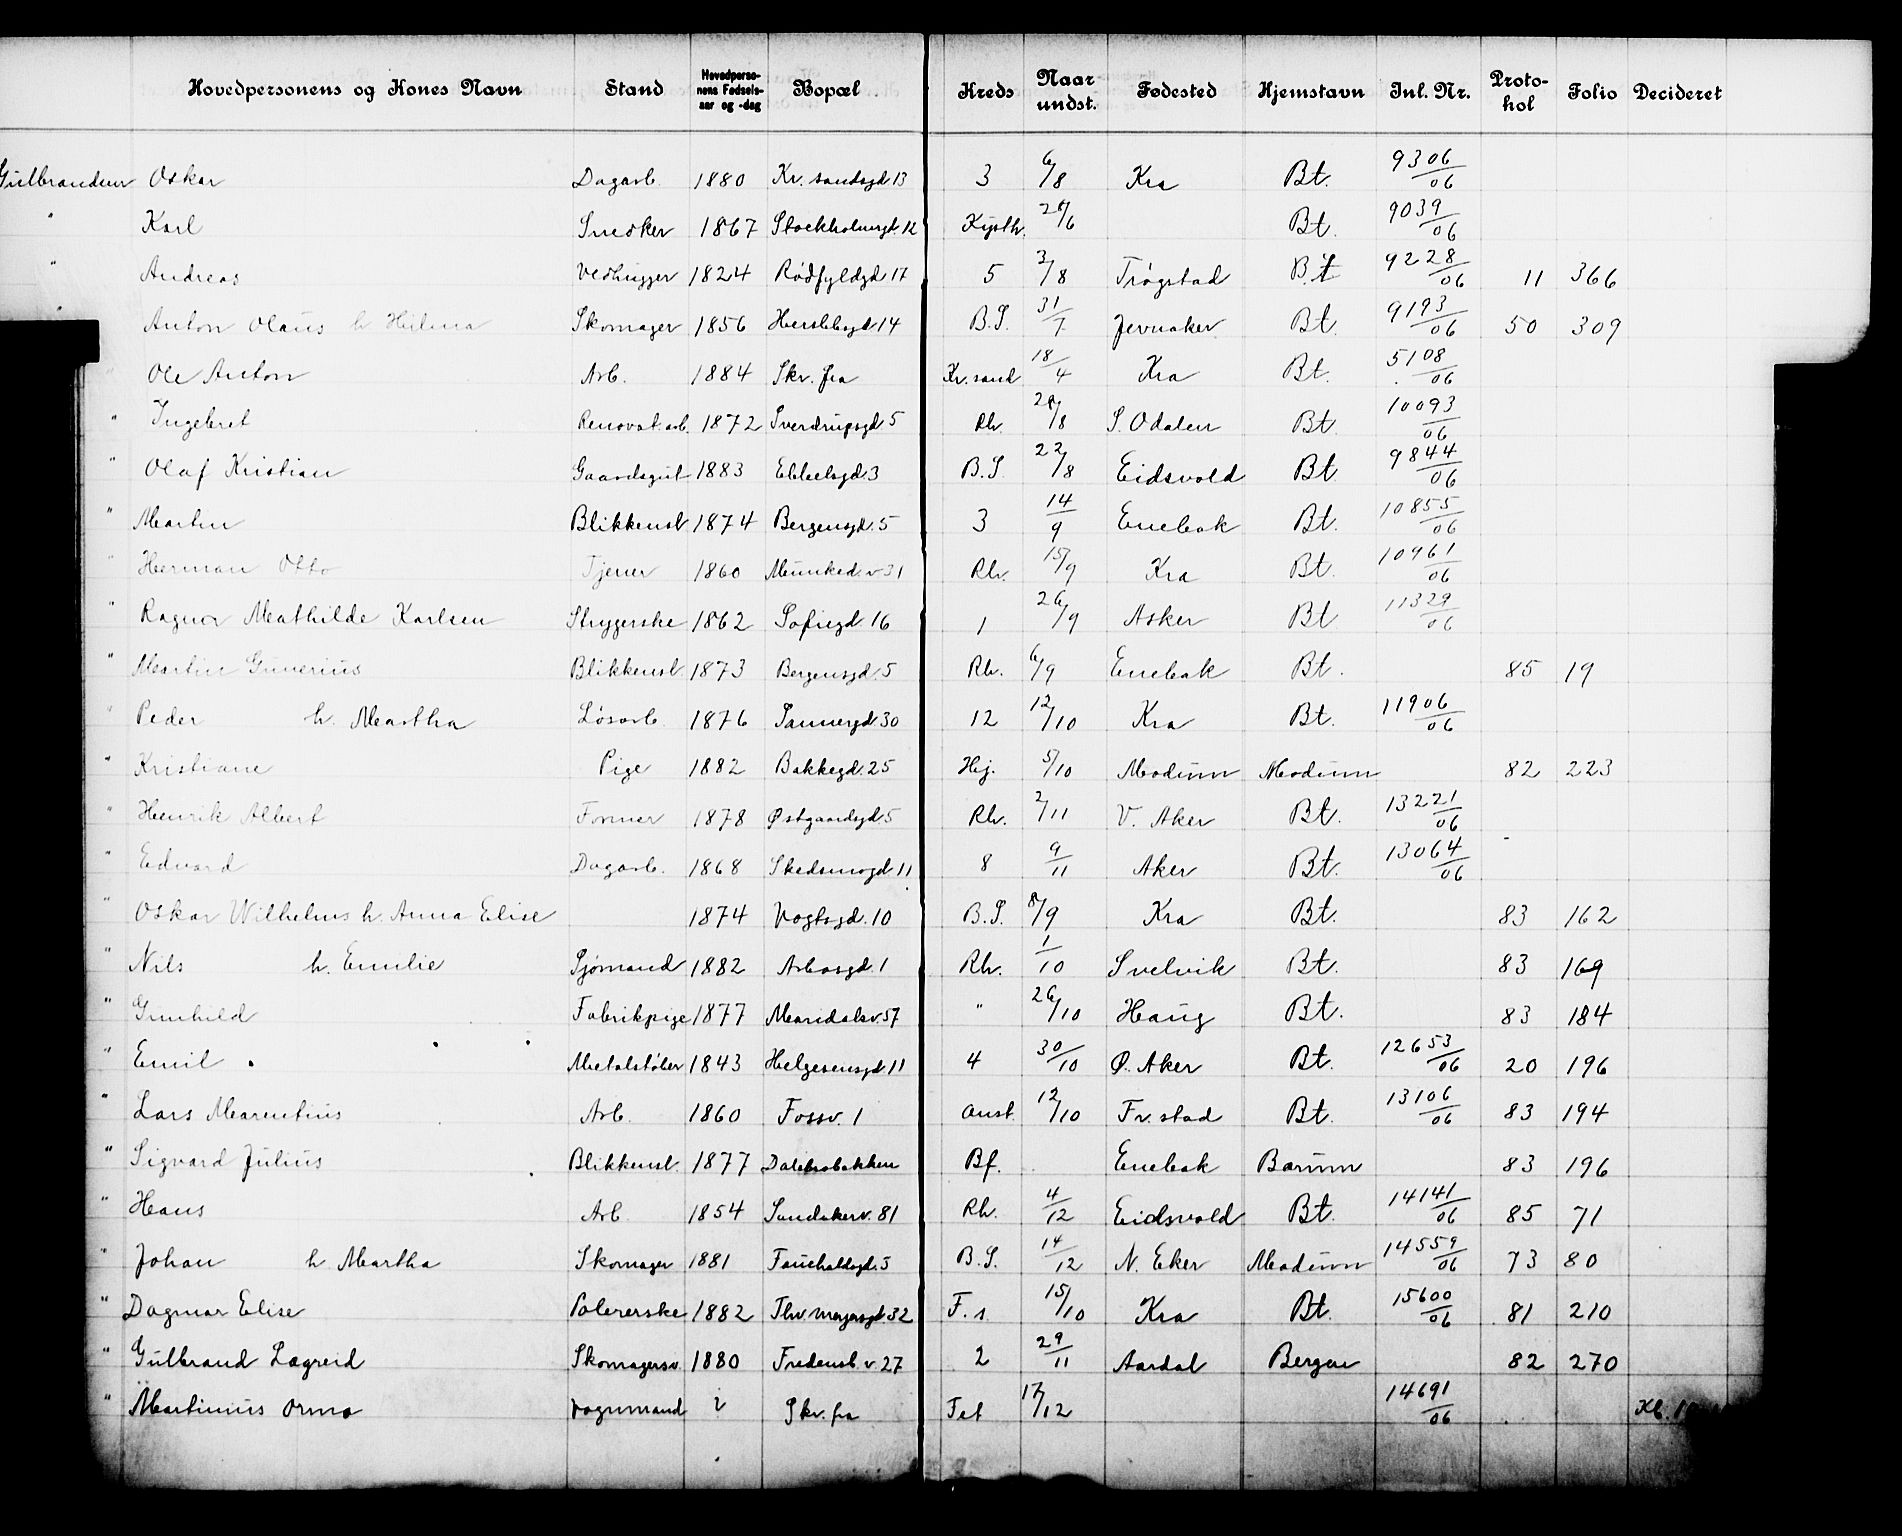 Hovedpersonens og Kones Navn Stand Hovedperso-nens Fødsels-aar og -dag Bopæl Kreds Naar undst. Fødested Hjemstavn Inl. Nr. Proto-kol Folio Decideret
Gulbrandsen Oskar Dagarb. 1880 Kr. sandsgd 13 3 6/8 Kra Bt. 9306/06
" Karl Snedker 1867 Stockholmsgd. 12 26/6 Bt. 9039/06
" Andreas Vedhugger 1824 Rødfyldgd 17 5 2/8 Trøgstad Bt 9228/06 11 366
" Anton Olaus h Hilma Skomager 1856 Herslebsgd 14 B.S. 31/7 Jevnaker Bt. 9193/06 50 309
" Ole Anton Arb. 1884 Skr. fra Kr. sand 18/4 Kra Bt. 5108/06
" Ingebret Renovat. arb. 1872 Sverdrupsgd 5 Rh. 28/8 S. Odalen Bt 10093/06
" Olaf Kristian Gaardsgut 1883 Ebbelsgd. 3 B.S. 22/8 Eidsvold Bt 9844/06
" Martin Blikkensl 1874 Bergensgd. 5 3 14/9 Enebak Bt. 10855/06
" Herman Otto Tjener 1860 Munked. v 31 Rh. 15/9 Kra Bt. 10961/06
" Ragna Mathilde Karlsen Strygerske 1862 Sofiegd. 16 1 26/9 Asker Bt 11329/06
" Martin Gunerius Blikkensl. 1873 Bergensgd. 5 Rh. 6/9 Enebak Bt. 85 19
" Peder h. Martha Løsarb. 1876 Sannergd. 30 12 12/10 Kra Bt. 11906/06
" Kristiane Pige 1882 Bakkegd. 25 Hej. 5/10 Modum Modum 82 223
" Henrik Albert Former 1878 Østgaardsgd. 5 Rh. 2/11 V. Aker Bt. 13221/06
" Edvard Dagarb. 1868 Skedsmogd. 11 8 9/11 Aker Bt. 13064/06
" Oskar Wilhelms h. Anna Elise 1874 Vogtsgd. 10 B.S. 8/9 Kra Bt. 83 162
" Nils h. Emilie Sjømand 1882 Arbosgd. 1 Rh. 1/10 Svelvik Bt. 83 169
" Gunhild Fabrikpige 1877 Maridalsv. 57 " 26/10 Haug Bt. 83 184
" Emil Metalstøber 1843 Helgesensgd 11 4 30/10 Ø. Aker Bt. 12653/06 20 196
" Lars Marentius Arb. 1860 Fossv. 1 Anst. 12/10 Fr. stad Bt. 13106/06 83 194
" Sigvard Julius Blikkensl. 1877 Dalebobakken Bf. Enebak Barum 83 196
" Hans Arb 1854 Sandakerv. 81 Rh. 4/12 Eidsvold Bt. 14141/06 85 71
" Johan h Martha Skomager 1881 Fauchaldsgd. 5 B.S. 14/12 N. Eker Modum 14559/06 73 80
" Dagmar Elise Polererske 1882 Thv. Meyersgd. 32 F. s. 15/10 Kra Bt. 15600/06 81 210
" Gulbrand Lagreid Skomagersv. 1880 Fredensb. v. 27 2 29/11 Aardal Bergen 82 270
" Martinius Ormo Vognmand Skr. fra Fet 17/12 14691/06 Kl.